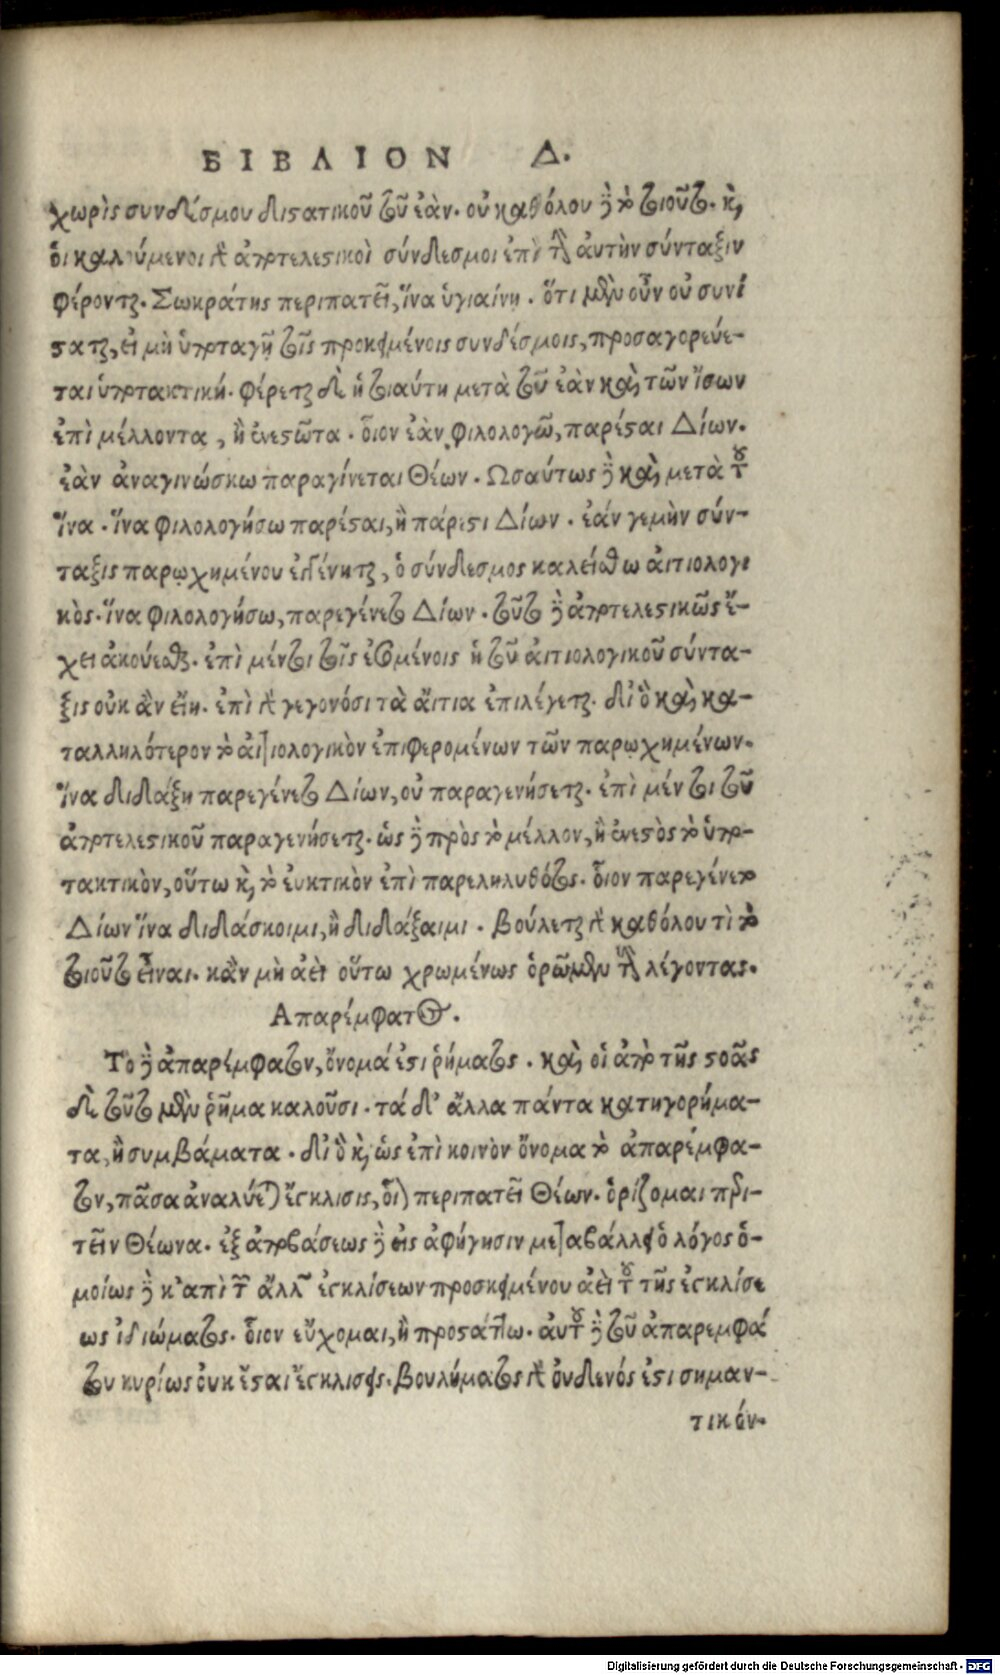 ΒΙΒΛΙΟΝ Δ.
χωρὶς συνδέσμου διστατικοῦ τοῦ ἐὰν. οὐ καθόλου δὲ τὸ τοιοῦτο. καὶ
ὁι καλούμενοι γὰρ ἀποτελεστικοὶ σύνδεσμοι ἐπὶ τὴν ἀυτὴν σύνταξιν
φέρονται. Σωκράτης περιπατεῖ, ἵνα ὑγιαίνῃ. ὅτι μὲν οὖν οὐ συνί
σταται, εἰ μὴ ὑποταγῇ τοῖς προκειμένοις συνδέσμοις, προσαγορεύε-
ται ὑποτακτική. φέρεται δὲ ἡ τοιαύτη μετὰ τοῦ ἐὰν καὶ τῶν ἴσων
ἐπὶ μέλλοντα, ἢ ἐνεστῶτα. ὅιον ἐὰν φιλολογῶ, παρέσται Δίων.
ἐὰν ἀναγινώσκω παραγίνεται Θέων. Ωσαύτως δὲ καὶ μετὰ τοῦ
ἵνα. ἵνα φιλολογήσω παρέσται, ἢ πάρεστι Δίων. ἐάν γεμὴν σύν-
ταξις παρῳχημένου ἐγγένηται, ὁ σύνδεσμος καλείσθω ἀιτιολογι
κὸς. ἵνα φιλολογήσω, παρεγένετο Δίων. τοῦτο δὲ ἀποτελεστικῶς ἔ-
χει ἀκούεσθαι. ἐπὶ μέντοι τοῖς ἐσομένοις ἡ τοῦ ἀιτιολογικοῦ σύντα-
ξις οὐκ ἂν εἴη. ἐπὶ γὰρ γεγονόσι τὰ ἄιτια ἐπιλέγεται. δι' ὃ καὶ κα-
ταλληλότερον τὸ ἀιτιολογικὸν ἐπιφερομένων τῶν παρῳχημένων.
ἵνα διδάξῃ παρεγένετο Δίων, οὐ παραγενήσεται. ἐπὶ μέν τοι τοῦ
ἀποτελεστικοῦ παραγενήσεται. ὡς δὲ πρὸς τὸ μέλλον, ἢ ἐνεστὸς τὸ ὑπο-
τακτικὸν, οὕτω καὶ τὸ ἐυκτικὸν ἐπὶ παρεληλυθότος. ὅιον παρεγένετο
Δίων ἵνα διδάσκοιμι, ἢ διδάξαιμι. βούλεται γὰρ καθόλου τὶ τὸ
τοιοῦτο εἶναι. κἂν μὴ ἀεὶ οὕτω χρωμένως ὁρῶμεν τοὺς λέγοντας.
Απαρέμφατος.
Τὸ δὲ ἀπαρέμφατον, ὄνομά ἐστι ῥήματος. καὶ οἱ ἀπὸ τῆς στοᾶς
δὲ τοῦτο μὲν ῥῆμα καλοῦσι. τά δ' ἄλλα πάντα κατηγορήμα-
τα, ἢ συμβάματα. δι' ὃ καὶ ὡς ἐπὶ κοινὸν ὄνομα τὸ ἀπαρέμφα-
τον, πᾶσα ἀναλύεται ἔγκλισις, ὅιον περιπατεῖ Θέων. ὁρίζομαι περιπα-
τεῖν Θέωνα. ἐξ ἀποβάσεως δὲ εἰς ἀφήγησιν μεταβάλλει ὁ λόγος ὁ-
μοίως δὲ κ' απὶ τῶν ἄλλων ἐγκλίσεων προσκειμένου ἀεὶ τοῦ τῆς ἐγκλίσε
ως ἰδιώματος. ὅιον εὔχομαι, ἢ προστάττω. ἀυτοῦ δὲ τοῦ ἀπαρεμφά
του κυρίως ὀυκ ἔσται ἔγκλισις. βουλήματος γὰρ ὀυδενός ἐστι σημαν-
τικόν.
Digitalisierung gefördert durch die Deutsche Forschungsgemeinschaft - DFG